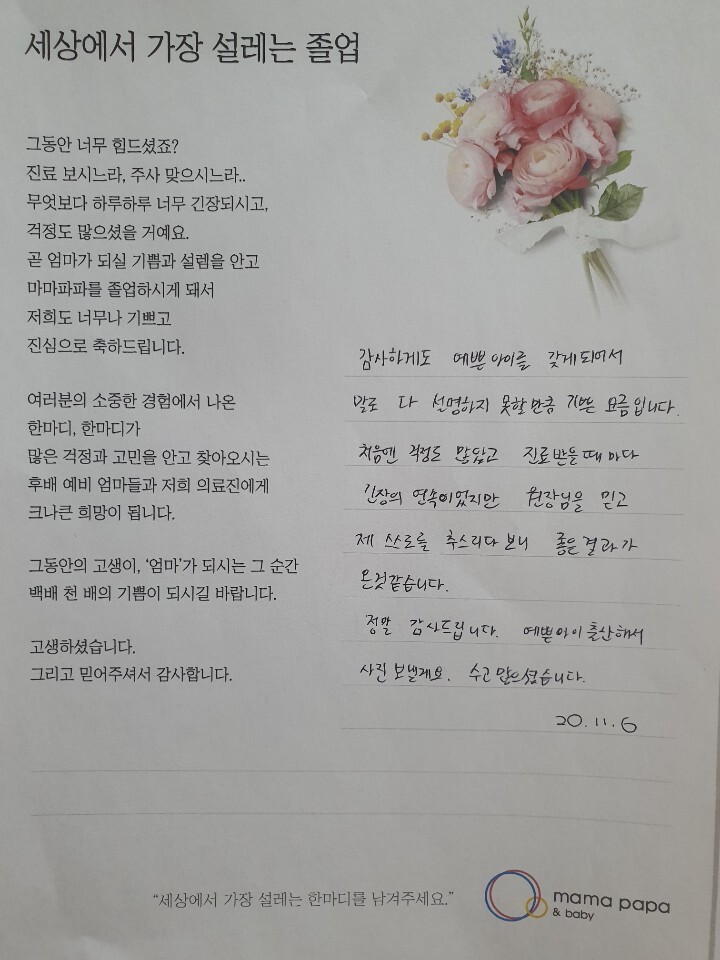 세상에서 가장 설레는 졸업
그동안 너무 힘드셨죠?
진료 보시느라, 주사 맞으시느라..
무엇보다 하루하루 너무 긴장되시고,
걱정도 많으셨을 거예요.
곧 엄마가 되실 기쁨과 설렘을 안고
마마파파를 졸업하시게 돼서
저희도 너무나 기쁘고
진심으로 축하드립니다.
여러분의 소중한 경험에서 나온
한마디, 한마디가
많은 걱정과 고민을 안고 찾아오시는
후배 예비 엄마들과 저희 의료진에게
크나큰 희망이 됩니다.
그동안의 고생이, '엄마'가 되시는 그 순간
백배 천 배의 기쁨이 되시길 바랍니다.
고생하셨습니다.
그리고 믿어주셔서 감사합니다.
감사하게도 예쁜 아이를 갖게 되어서
말로 다 설명하지 못할만큼 기쁜 요즘입니다.
처음엔 걱정도 많았고 진료받을때마다
긴장의 연속이었지만 원장님을 믿고
제 스스로를 추스리다보니 좋은결과가
온것같습니다.
정말 감사드립니다. 예쁜아이 출산해서
사진 보낼게요. 수고많으셨습니다.
20.11.6
"세상에서 가장 설레는 한마디를 남겨주세요."
mama papa
& baby